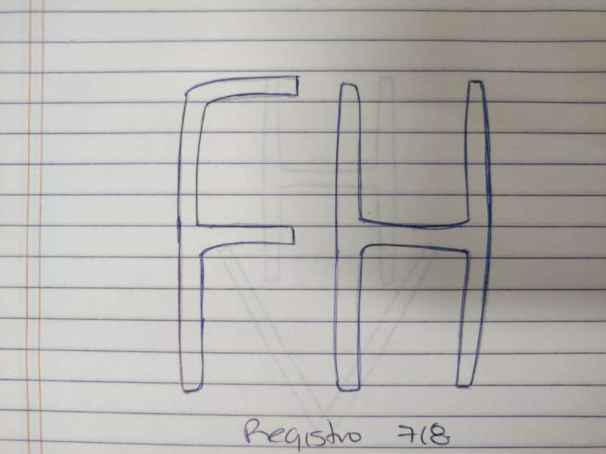 FH
Registro 718